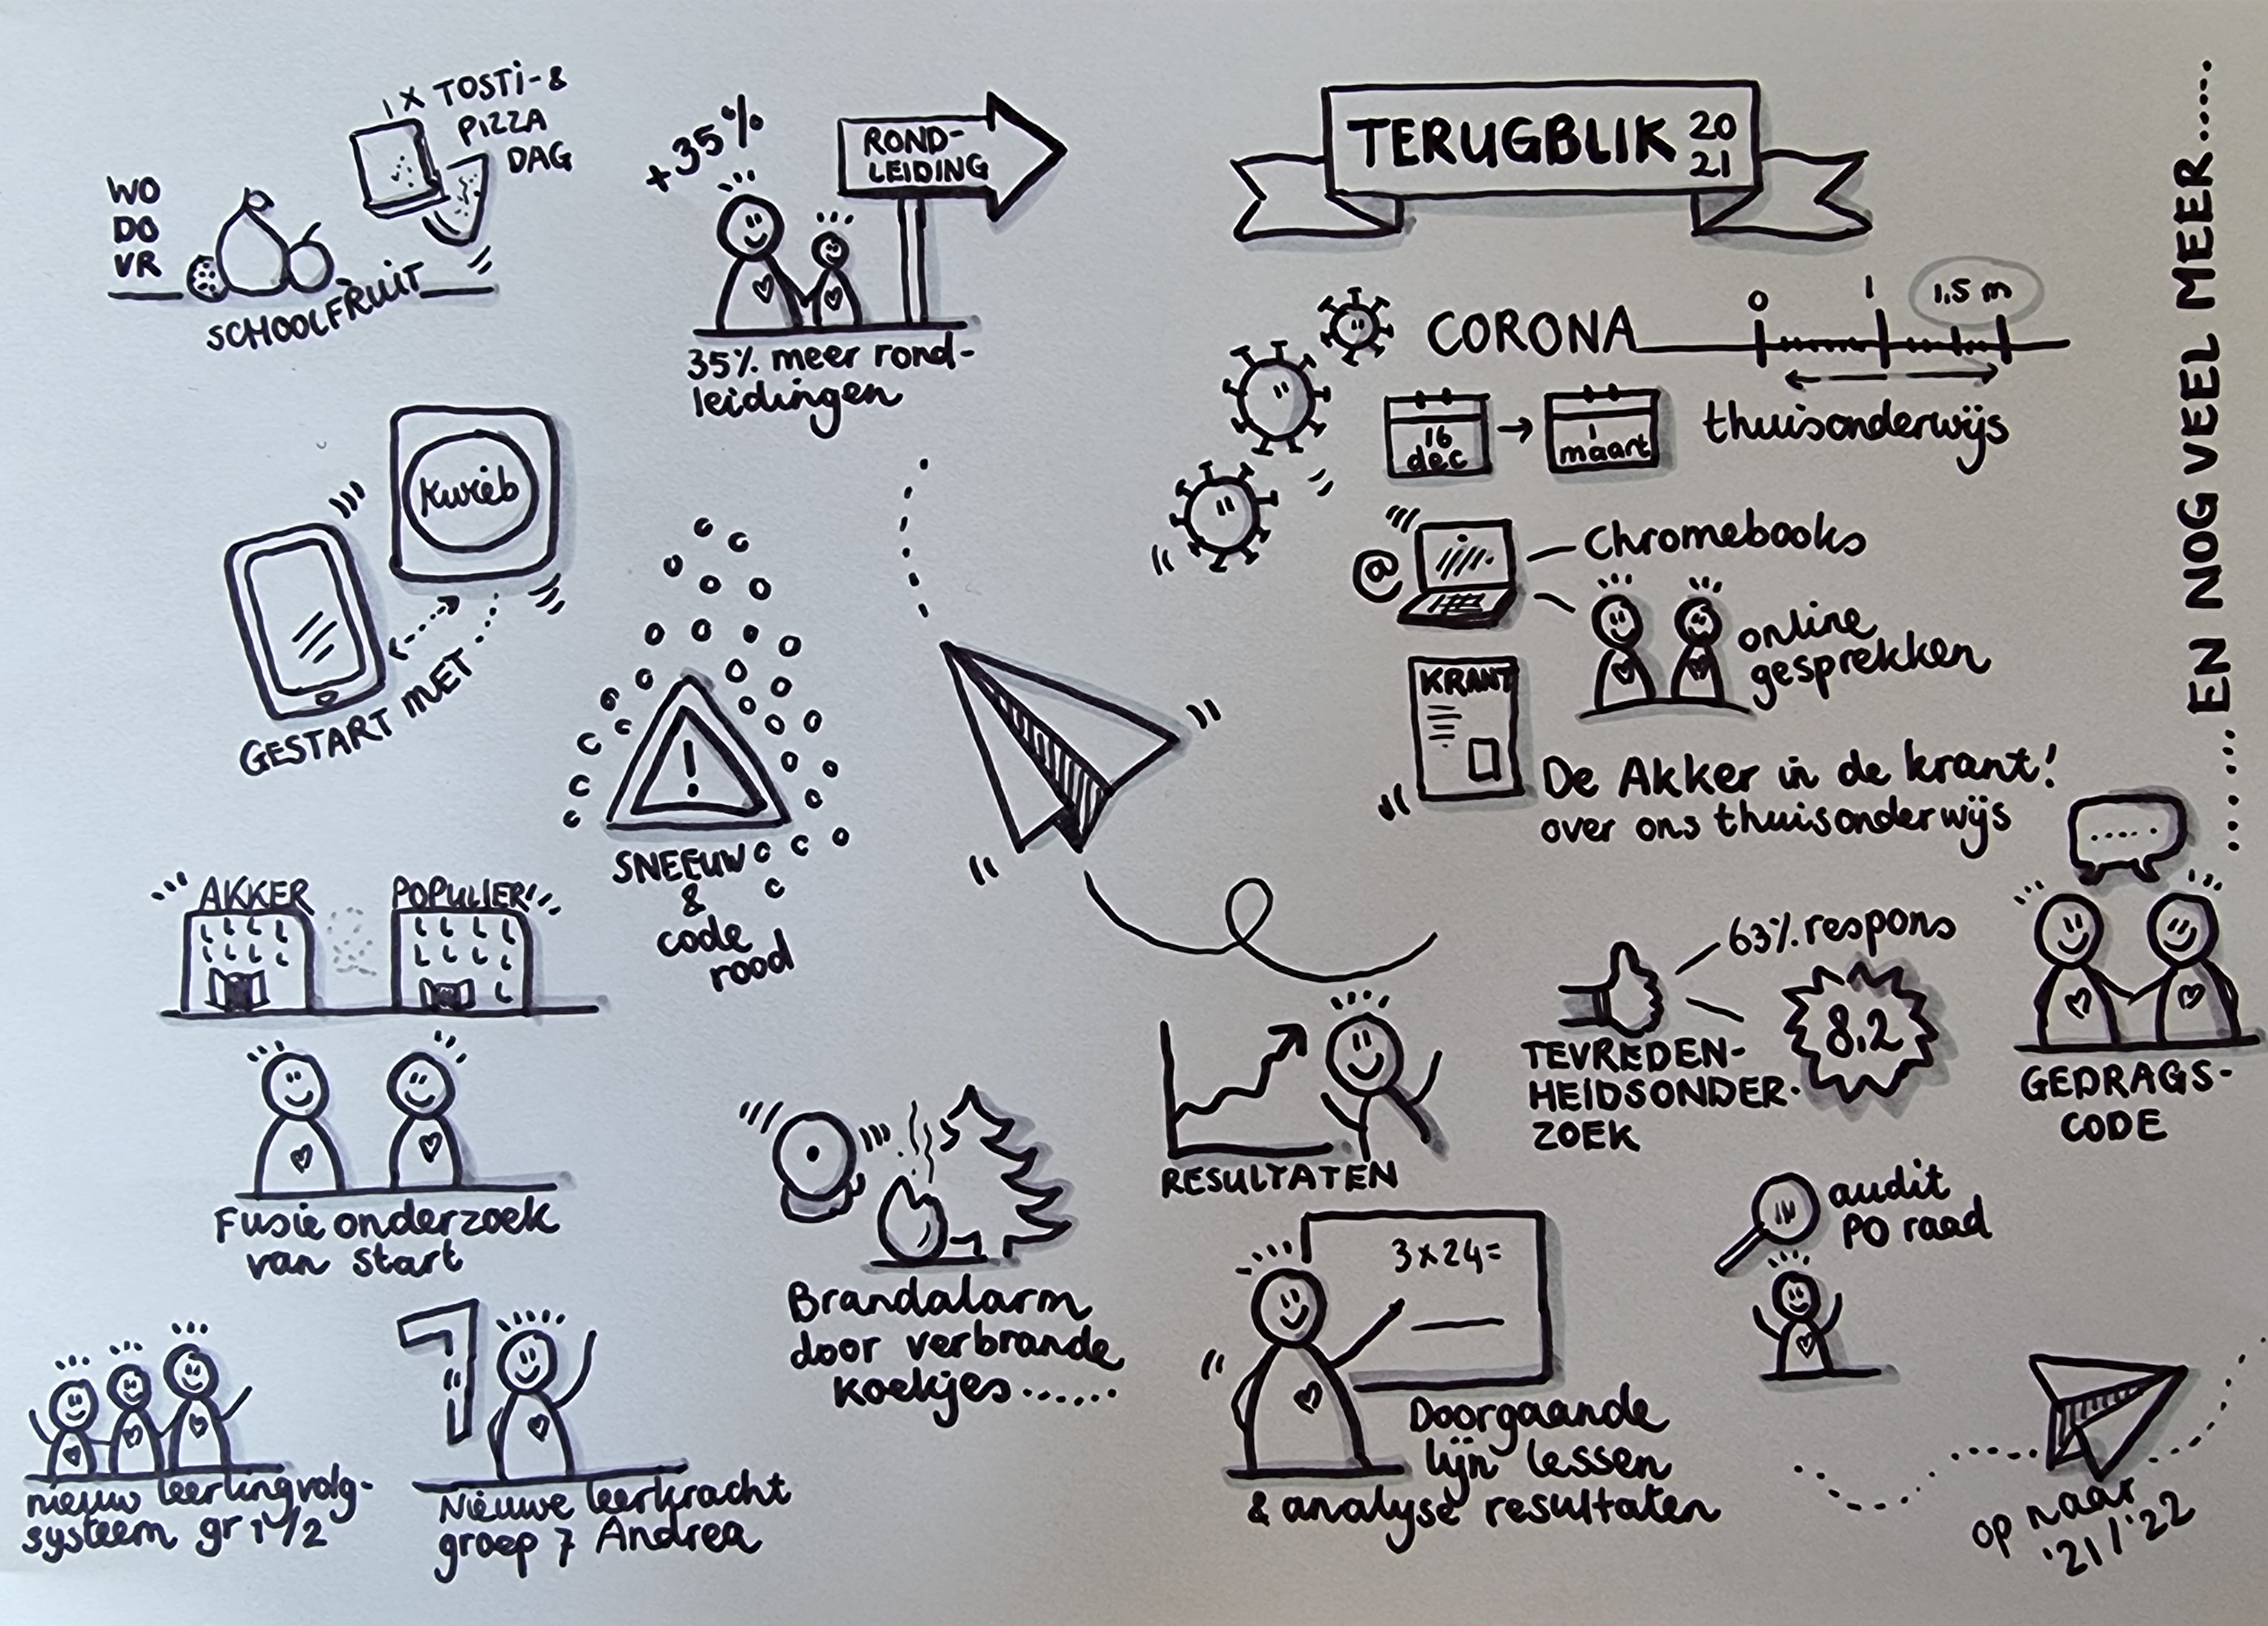 1 X TOSTI- &
PIZZA
DAG
WO
DO
VR
SCHOOLFRUIT
+35%
ROND-
LEIDING
35% meer rond-
leidingen
TERUGBLIK 20
21
CORONA
0 1 1,5 m
16
dec
1
maart
thuisonderwijs
@
Chromebooks
online
gesprekken
KRANT
De Akker in de krant!
over ons thuisonderwijs
EN NOG VEEL MEER.....
Kwieb
GESTART MET
!
SNEEUW
&
code
rood
AKKER POPULIER
Fusie onderzoek
van start
nieuw leerlingvolg-
systeem gr 1/2
7
Nieuwe leerkracht
groep 7 Andrea
Brandalarm
door verbrande
koekjes......
RESULTATEN
63% respons
8,2
TEVREDEN-
HEIDSONDER-
ZOEK
.....
GEDRAGS-
CODE
audit
PO raad
3x24=
Doorgaande
lijn lessen
& analyse resultaten
op naar
'21/'22